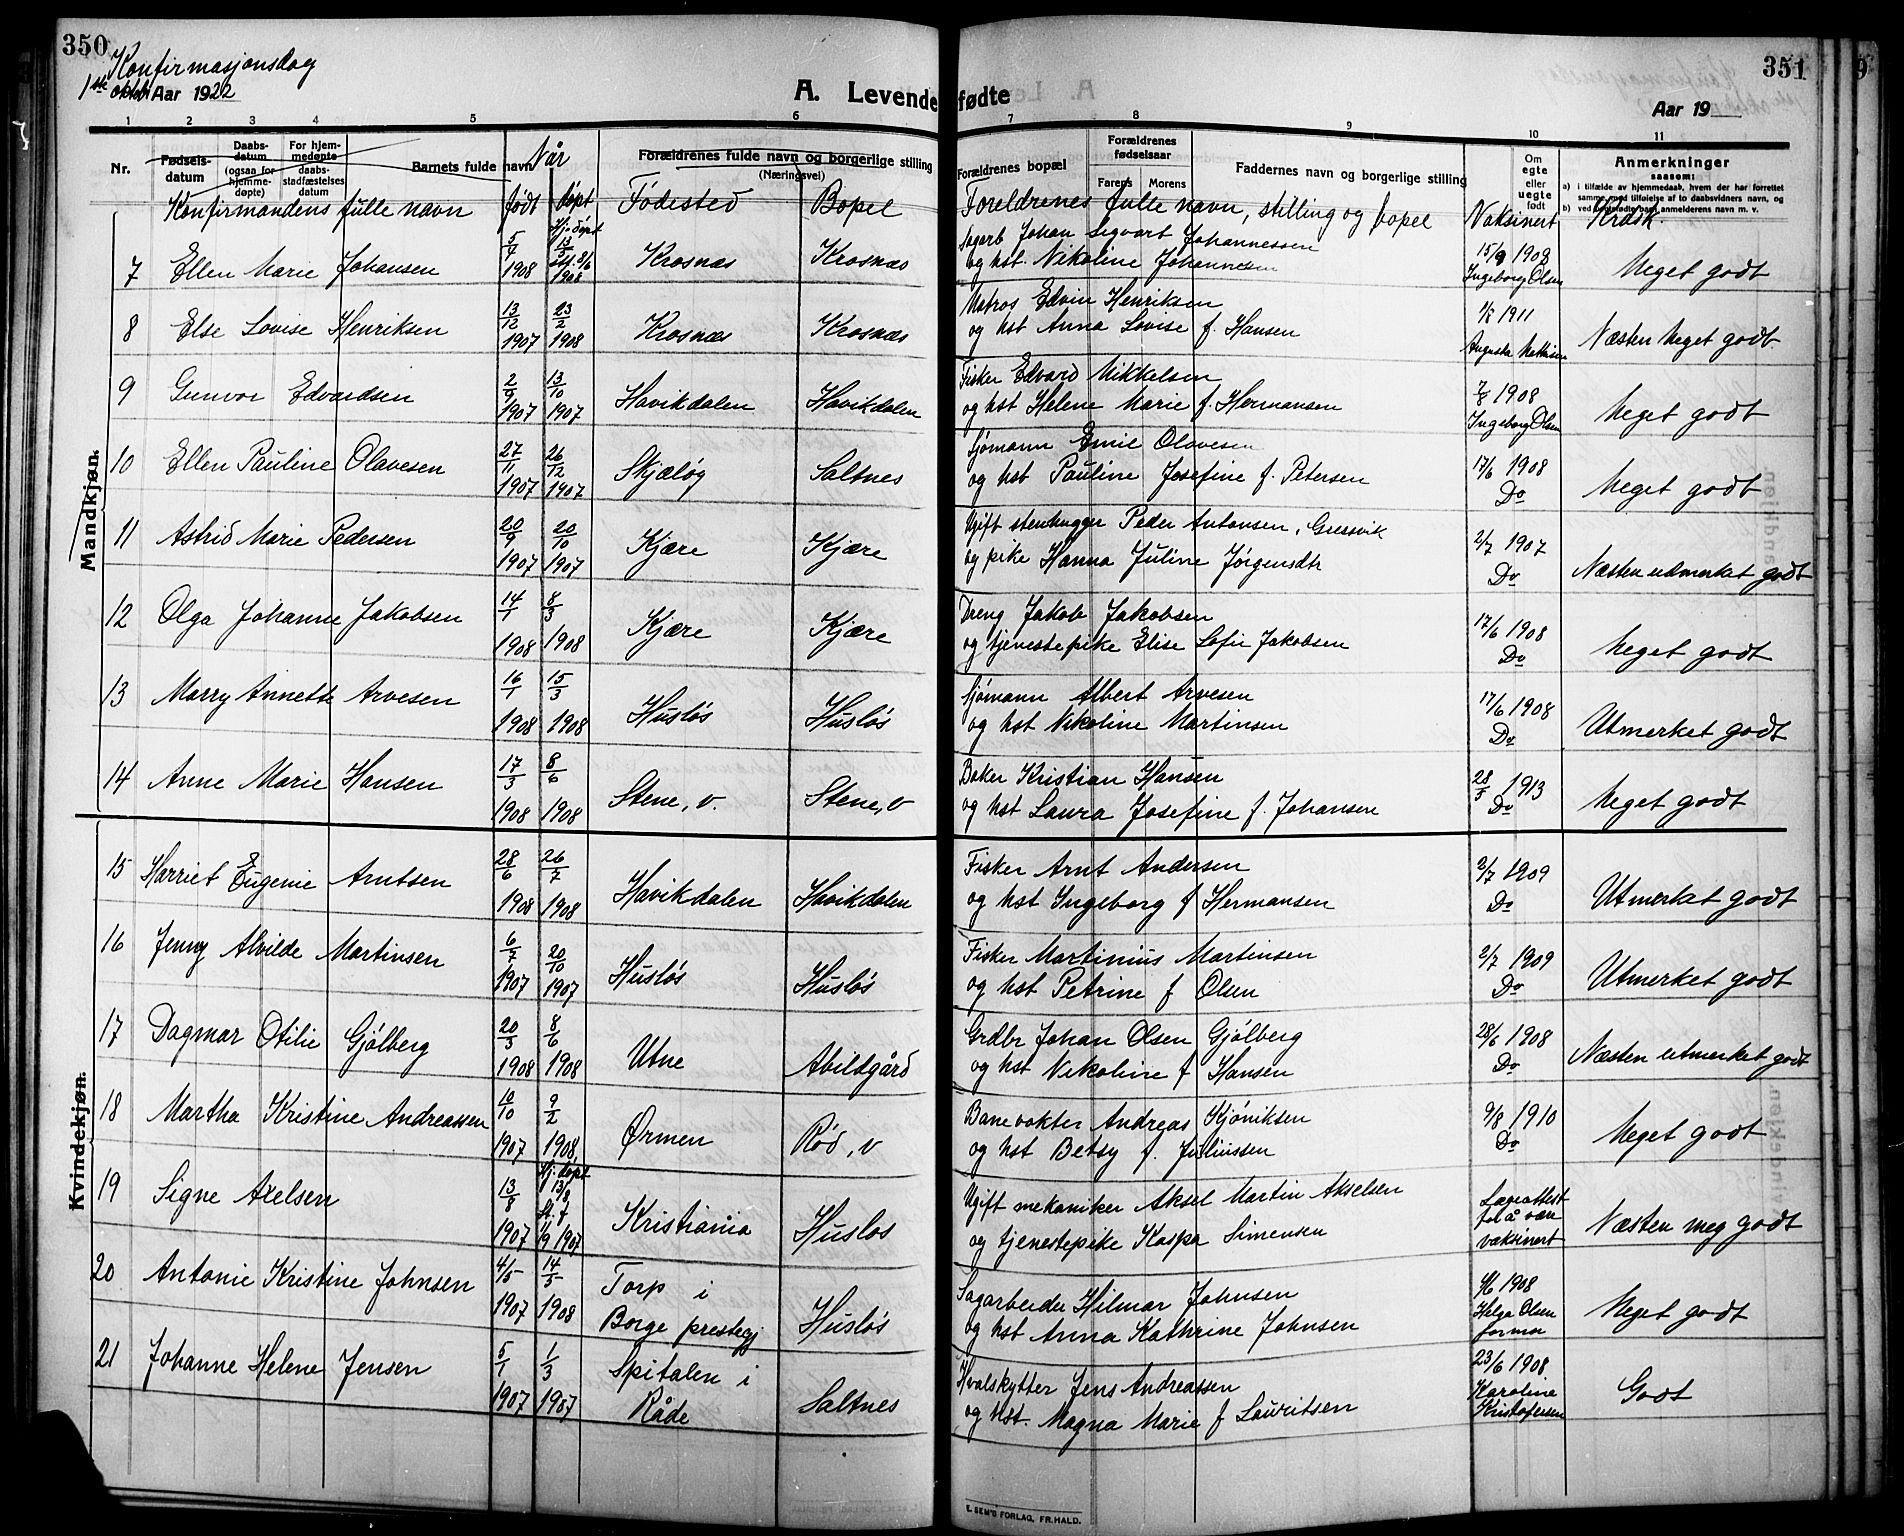 350
Konfirmasjonsdag
1ste oktob Aar 1922
A. Levende
1 2 3 4 5 6
Nr.
Fødsels-
datum
Daabs-
datum
(ogsaa for
hjemme-
døpte)
For hjem-
medøpte
daabs-
stadfæstelses
datum
Barnets fulde navn
Når
Forældrenes fulde navn og borgerlige stilling
(Næringsvei)
Konfirmandens fulle navn født døpt Fødested Bopel
Mandkjøn.
7 Ellen Marie Johansen 5/4 1908 Hj. døpt 13/4 1908 Krosnæs Krosnæs
8 Else Lovise Henriksen 13/12 1907 23/2 1908 Krosnæs Krosnæs
9 Gunvor Edvardsen 2/9 1907 13/10 1907 Havikdalen Havikdalen
10 Ellen Pauline Olavesen 27/11 1907 26/12 1907 Skjæløy Saltnes
11 Astrid Marie Pedersen 20/9 1907 20/10 1907 Kjære Kjære
12 Olga Johanne Jakobsen 14/1 1908 8/3 1908 Kjære Kjære
13 Marry Annette Arvesen 16/1 1908 15/3 1908 Husløs Husløs
14 Anne Marie Hansen 17/3 1908 8/6 1908 Stene, v. Stene, v
Kvindekjøn.
15 Harriet Eugenie Arntsen 28/6 1908 26/7 1908 Havikdalen Havikdalen
16 Jenny Alvilde Martinsen 6/7 1907 20/10 1907 Husløs Husløs
17 Dagmar Otilie Gjølberg 20/3 1908 8/6 1908 Utne Abildgård
18 Martha Kristine Andreassen 10/10 1907 9/2 1908 Ørmen Rød, v
19 Signe Axelsen 13/8 1907 Hj. døpt 13/8 st. f 1/9 1907 Kristiania Husløs
20 Antonie Kristine Johnsen 4/5 1907 14/5 1908 Torp i
Borge prestegj Husløs
21 Johanne Helene Jensen 5/1 1907 1/3 1907 Spitalen i
Råde Saltnes
351
fødte
Aar 19
7 8 9 10 11
Forældrenes bopæl
Forældrenes
fødselsaar
Farens Morens
Faddernes navn og borgerlige stilling
Om
egte
eller
uegte
født
Anmerkninger
saasom:
a) i tilfælde av hjemmedaab, hvem der har forrettet
samme, med tilføielse af to daabsvidners navn, og
b) ved uegtefødte barn anmelderens navn m. v.
Foreldrenes fulle navn, stilling og bopel Vaksinert Krdsk.
Sagarb Johan Sigvart Johannessen
og hst. Nikoline Johannesen 15/9 1908
Ingeborg Olsen Meget godt
Matros Edvin Henriksen
og hst Anna Lovise f. Hansen 1911
Augusta Næsten Meget godt
Fisker Edvard Mikkelsen
og hst Helene Marie f. Hermansen 1908
Ingeborg Olsen Meget godt
Sjømann Emil Olavesen
og hst Pauline Josefine f. Petersen 17/6 1908
Do Meget godt
Ugift stenhugger Peder Antonsen, Gressvik
og pike Hanna Juline Jørgensdtr 2/7 1907
Do Næsten utmerket godt
Dreng Jakob Jakobsen
og tjenestepike Elise Sofie Jakobsen 17/6 1908
Do Meget godt
Sjømann Albert Arvesen
og hst Nikoline Martinsen 17/6 1908
Do Utmerket godt
Baker Kristian Hansen
og hst Laura Josefine f. Johansen 28/5 1913
Do Meget godt
Fisker Arnt Andersen
og hst Ingeborg f Hermansen 2/7 1909
Do Utmerket godt
Fisker Martinius Martinsen
og hst Petrine f Olsen 2/7 1909
Do Utmerket godt
Grdbr Johan Olsen Gjølberg
og hst Nikoline f Hansen 28/6 1908
Do Næsten utmerket godt
Banevokter Andreas Kjøniksen
og hst Betsy f. Juliussen 9/8 1910
Do Meget godt
Ugift mekaniker Aksel Martin Akselsen
og tjenestepike Kaspa Simensen Lægeattest
for å være
vaksinert Næsten meg godt
Sagarbeider Hilmar Johnsen
og hst Anna Kathrine Johnsen 1908
Helga Olsen
Meget godt
Hvalskytter Jens Andreassen
og hst. Magna Marie f Lauritsen 23/6 1908
Karoline
Kristofersen Godt
E. SEM'S FORLAG, FR.HALD.